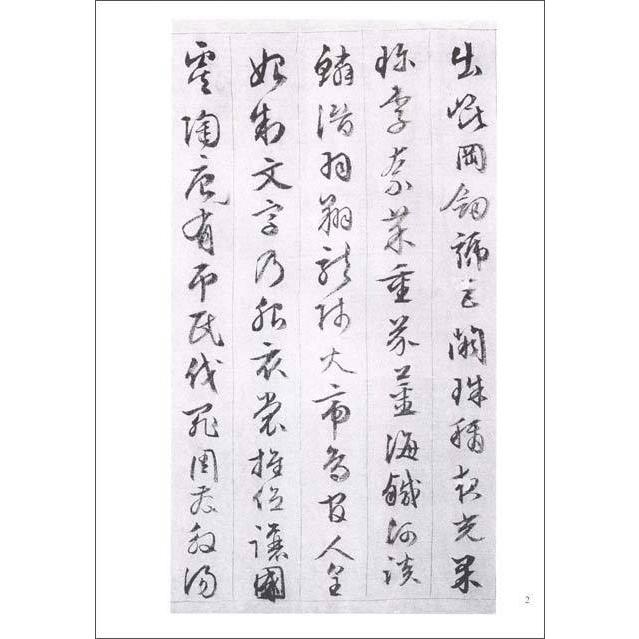 出崐岡劍號巨闕珠稱夜光果
珍李柰菜重芥薑海鹹河淡
鱗潛羽翔龍師火帝鳥官人皇
始制文字乃服衣裳推位讓國
虞陶唐有弔民伐罪周發殷湯
2